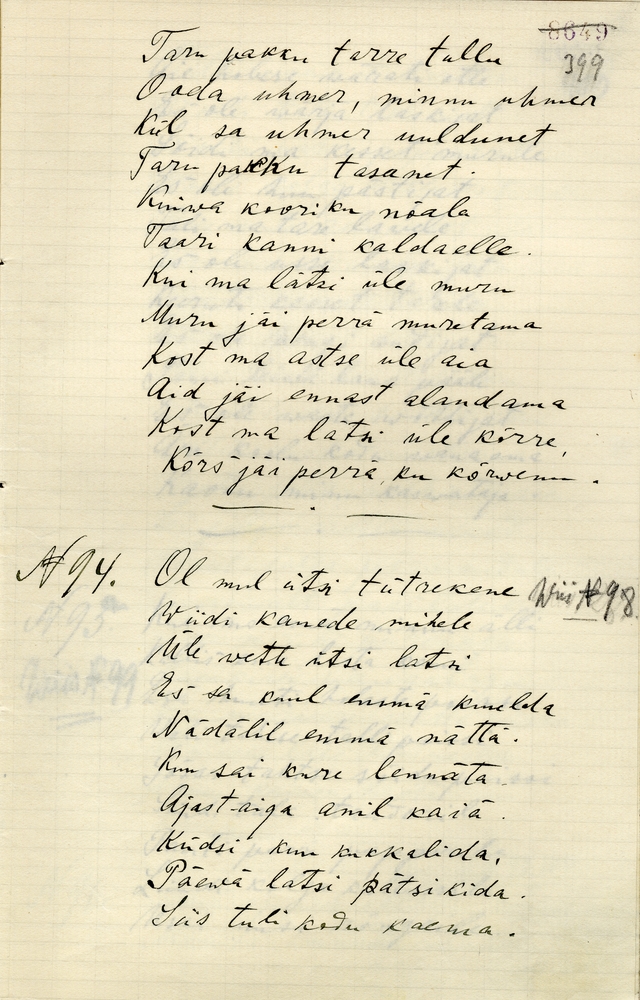 8649
399
Taru pakku tarre tullu
Ooda uhmer, minnu uhmer
Kül sa uhmer uuldunet
Taru pakku tasanet.
Kuiwa kooriku nõala
Taari kanni kaldaelle.
Kui ma lätsi üle muru
Muru jäi perrä muretama
Kost ma astse üle aia
Aid jäi ennast alandama
Kost ma lätsi üle kõrre,
Kõrs jäi perrä, ku kõrwenu.
N 94. Ol mul ütsi tütrekene Wiis N 98.
Viidi kanede mihele
Üle vette ütsi latsi
Es sa kuul emmä kuulda
Nädälil emmä nättä.
Kuu sai kure lennäta
Ajast-aiga anil kaiä.
Küdsi kuu kukkalida,
Päewä latsi pätsikida.
Siis tuli kodu kaema.